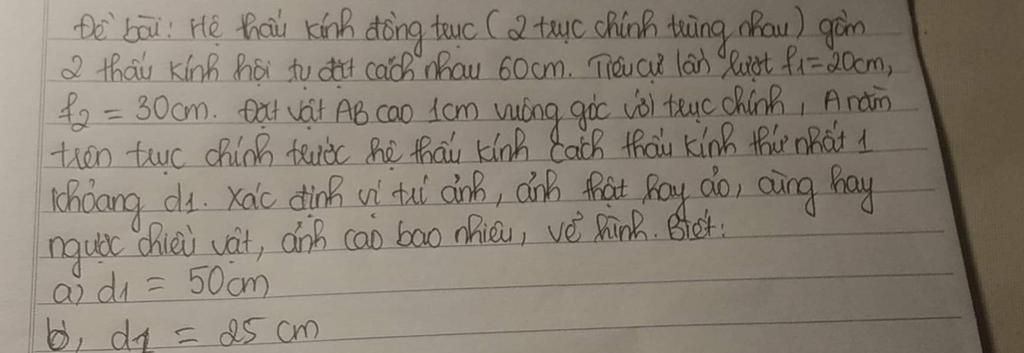 Đề bài: Hệ thấu kính đồng trục (2 trục chính trùng nhau) gồm
2 thấu kính hội tụ đặt cách nhau 60cm. Tiêu cự lần lượt f1=20cm,
f2 = 30cm. Đặt vật AB cao 1cm vuông góc với trục chính, A nằm
trên trục chính trước hệ thấu kính cách thấu kính thứ nhất 1
khoảng d1. Xác định vị trí ảnh, ảnh thật hay ảo, cùng hay
ngược chiều vật, ảnh cao bao nhiêu, vẽ hình. Biết:
a) d1 = 50cm
b, d1 = 25 cm